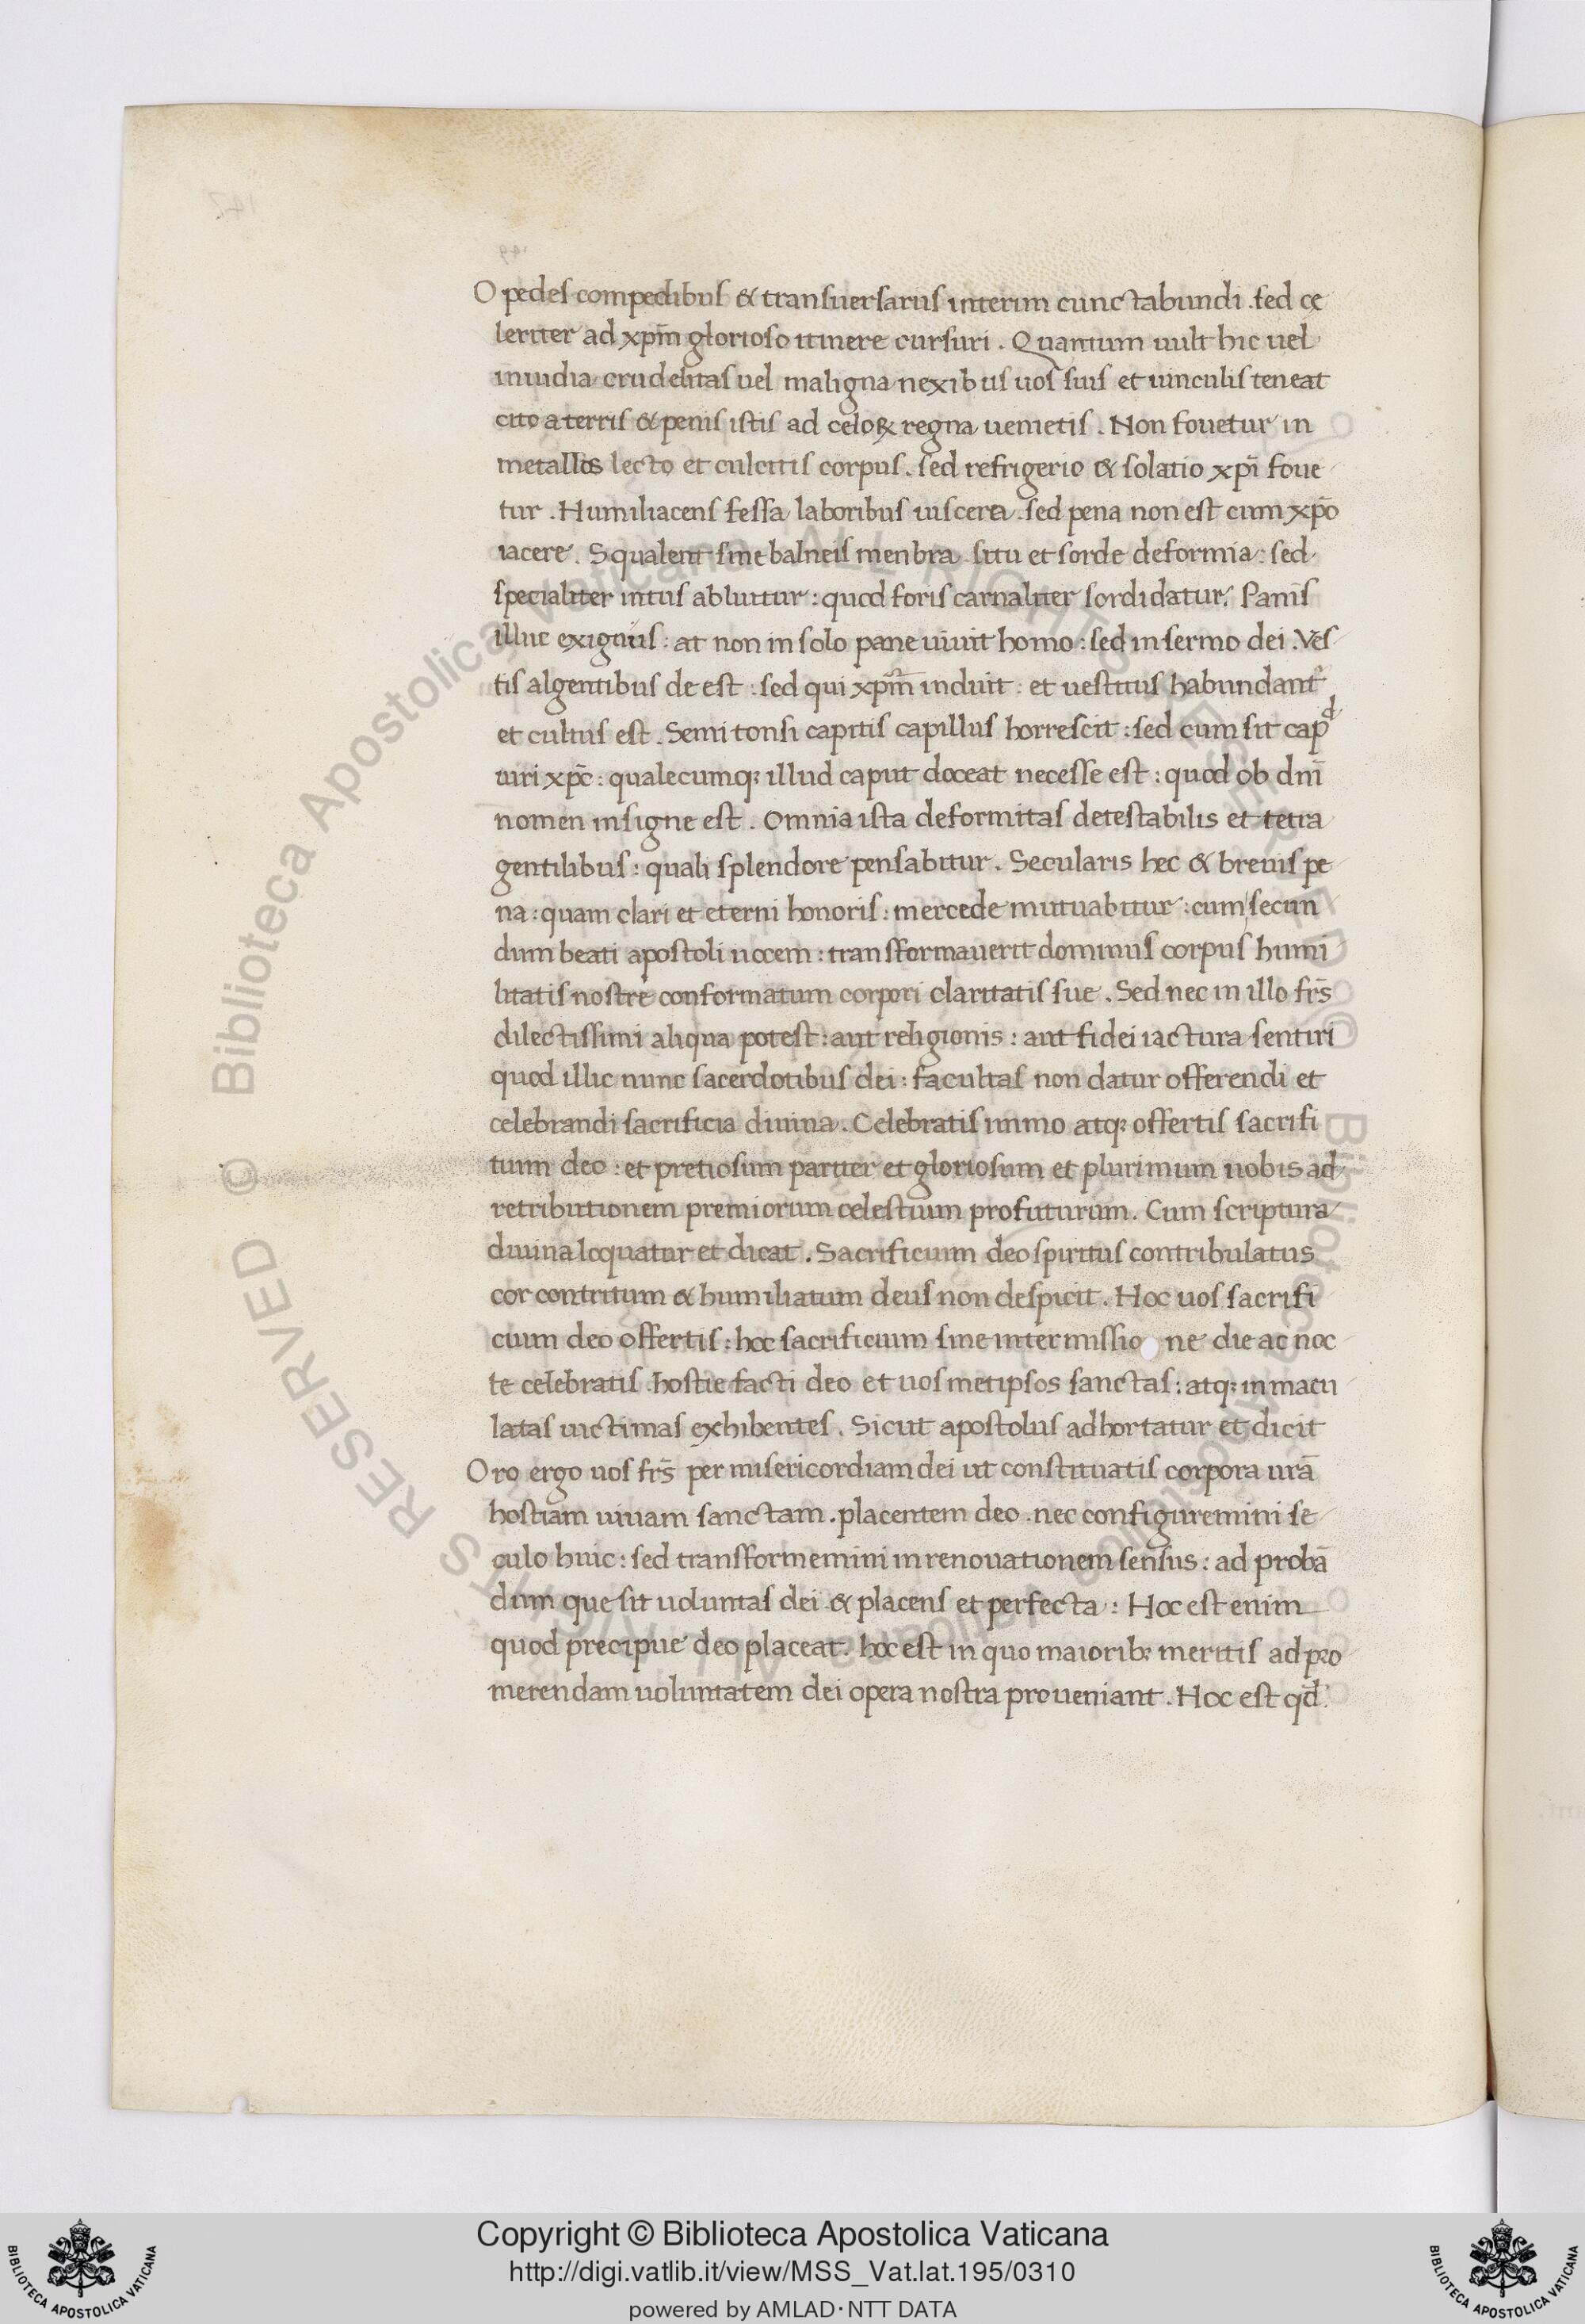 O pedes compedibus & transuersariis interim cunctabundi . sed cę
leriter ad xp̄m glorioso itinere cursuri . Quantum uult hic uel
inuidia crudelitas uel maligna nexibus uos suis et uinculis teneat
cito a terris & penis istis ad celoꝝ regna uenietis . Non fouetur in
metallos lecto et culcitis corpus . sed refrigerio & solatio xp̄i foue
tur . Humiliacens fessa laboribus uiscera . sed pena non est cum xp̄o
iacere . Squalent sine balneis menbra situ et sorde deformia : sed
specialiter intus abluitur : quod foris carnaliter sordidatur . Panis
illuc exiguus : at non in solo pane uiuit homo : sed in sermo dei . Ves
tis algentibus de est : sed qui xp̄m induit : et uestitus habundant
et cultus est . Semi tonsi capitis capillus horrescit : sed cum sit cap
uiri xp̄c : qualecumqꝫ illud caput doceat necesse est : quod ob dnī
nomen insigne est . Omnia ista deformitas detestabilis et tetra
gentilibus : quali splendore pensabitur . Secularis hec & breuis pe
na : quam clari et eterni honoris : mercede mutuabitur : cum secun
dum beati apostoli uocem : transformauerit dominus corpus humi
litatis nostre conformatum corpori claritatis sue . Sed nec in illo fr̄s
dilectissimi aliqua potest : aut religionis : aut fidei iactura sentiri
quod illic nunc sacerdotibus dei : facultas non datur offerendi et
celebrandi sacrificia diuina . Celebratis immo atqꝫ offertis sacrifi
tium deo : et pretiosum pariter et gloriosum et plurimum uobis ad
retributionem premiorum celestium profuturum . Cum scriptura
diuina loquatur et dicat . Sacrificium deo spiritus contribulatus
cor contritum & humiliatum deus non despicit . Hoc uos sacrifi
cium deo offertis : hoc sacrificium sine intermissio ne die ac noc
te celebratis . hostie facti deo et uosmetipsos sanctas : atqꝫ inmacu
latas uictimas exhibentes . Sicut apostolus adhortatur et dicit
Oro ergo uos fr̄s per misericordiam dei ut constituatis corpora urā
hostiam uiuam sanctam . placentem deo . nec configuremini se
culo huic : sed transformemini in renouationem sensus : ad probā
dum que sit uoluntas dei & placens et perfecta : Hoc est enim
quod precipue deo placeat . hoc est in quo maioribꝫ meritis ad pro
merendam uoluntatem dei opera nostra proueniant . Hoc est qd̄
© Biblioteca Apostolica Vaticana ALL RIGHTS RESERVED
© Biblioteca Apostolica Vaticana ALL RIGHTS RESERVED
Copyright © Biblioteca Apostolica Vaticana
http://digi.vatlib.it/view/MSS_Vat.lat.195/0310
powered by AMLAD·NTT DATA
BIBLIOTECA APOSTOLICA VATICANA
BIBLIOTECA APOSTOLICA VATICANA